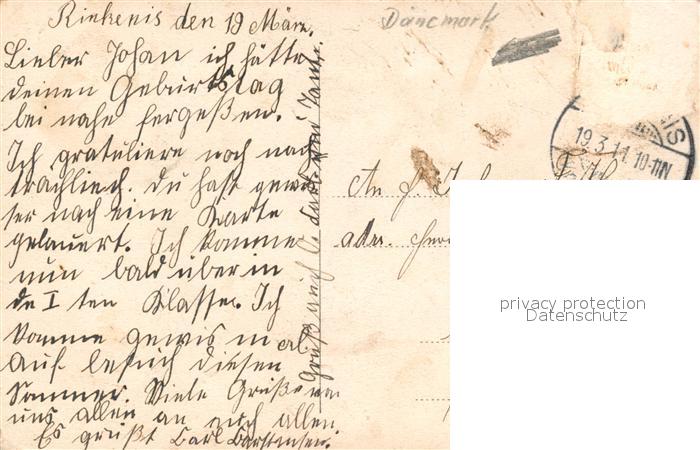 Rinkenis den 19 März.
Lieber Johan ich hätte
deinen Geburtstag
bei nahe fergeßen.
Ich gratuliere noch nach
trachlich. Du hast gewi
ser nach eine Karte
gelauert. Ich komme
nun bald über in
de I ten Klasse. Ich
komme gewis mal
auf besuch diesen
Sommer. Viele Grüße von
uns allen an euch allen.
Es grüßt Carl Carstensen.
Gruß auch
Dänemark
19.3.11.10-11N
An J.
adr.
privacy protection
Datenschutz